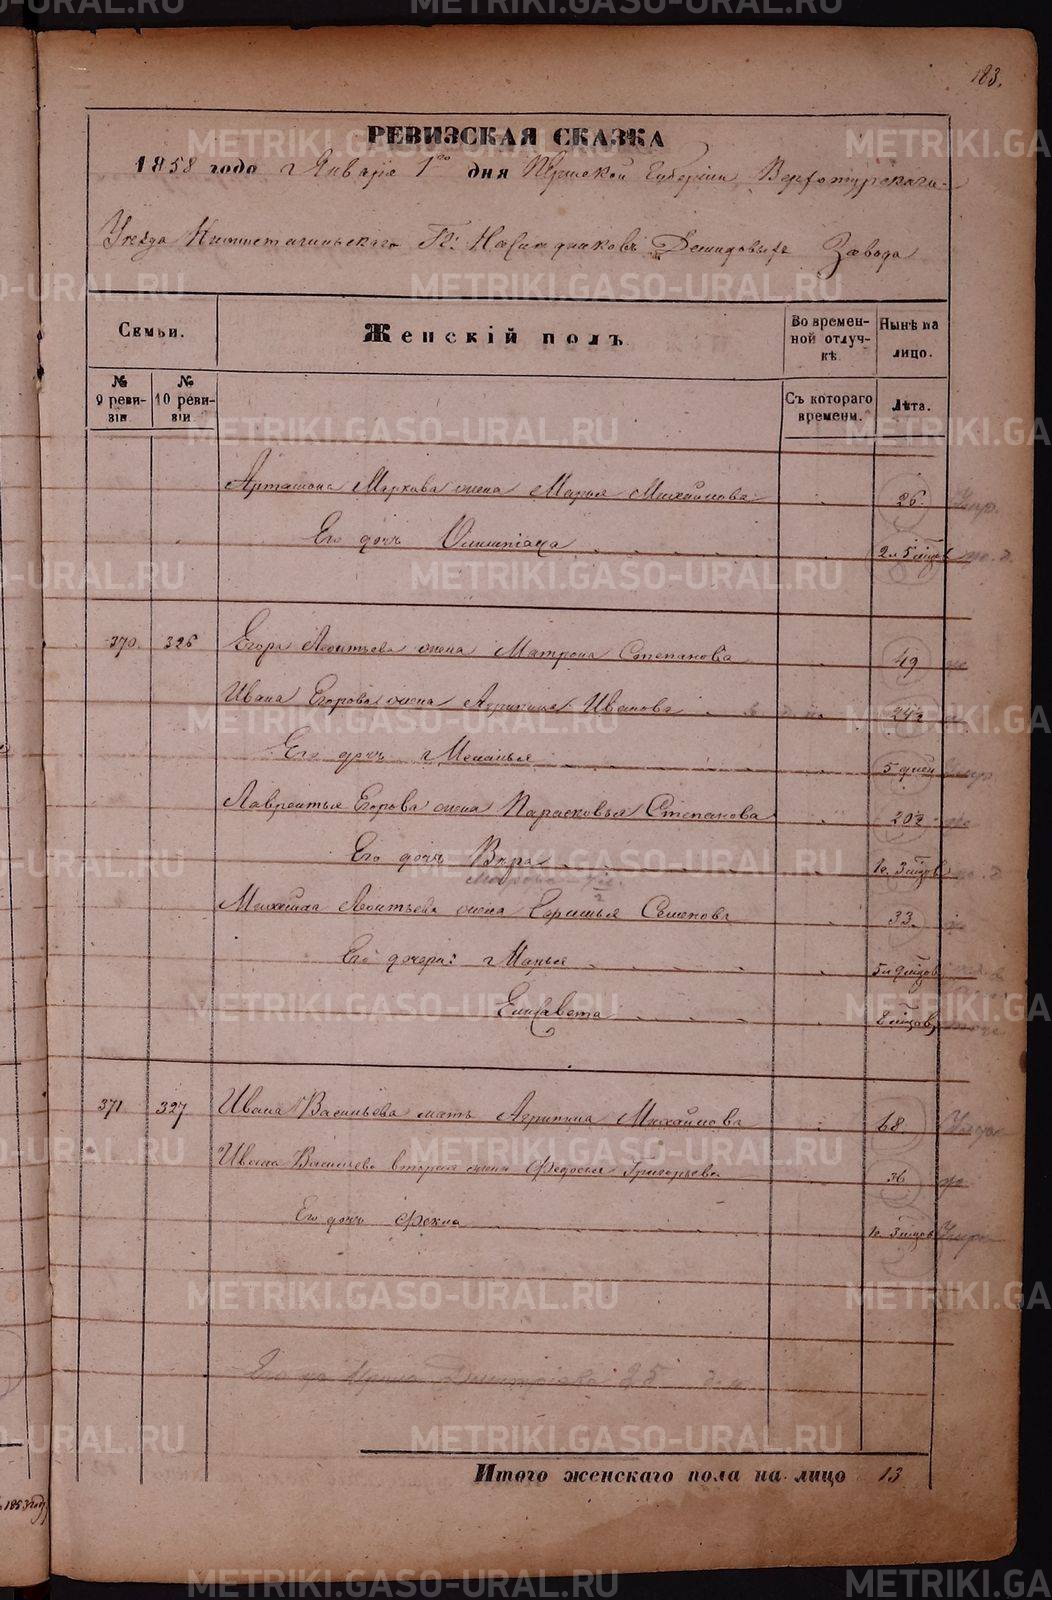 183.
РЕВИЗСКАЯ СКАЗКА
1858 года Января 1го дня Пермской Губерніи Верхотурскаго
Уѣзда Нижнетагильскаго Гг: Наслѣдниковъ Демидовыхъ Завода
Семьи.
Женскій полъ
Во времен-
ной отлуч-
кѣ
Нынѣ на
лицо.
№ 9 реви-
зіи
№ 10 реви-
зіи
Съ котораго
времени.
Лѣта.
Артамона Маркова жена Марья Михайлова 26 Умр.
Его дочь Олимпіада 2. 5 мцов
370. 326 Егора Леонтьева жена Матрона Степанова 49
Ивана Егорова жена Агрипина Иванова 24½
Его дочь Меланья 5 дней Умр.
Лаврентья Егорова жена Парасковья Степанова 20½
Его дочь Вѣра 1. 3 мцов
Михайла Леонтьева жена Семенова 33.
Его дочери: Марья 5. 9 мцов
Елисавета 8 мцов
371 327 Ивана Васильева мать Агрипина Михайлова 68.
Ивана Васильева вторая жена Федосья Григорьева 36
Его дочь Фекла 1. 3 мцов Умр.
Его Ирина Дмитріева 25
Итого женскаго пола на лицо 13
1853 году
METRIKI.GASO-URAL.RU